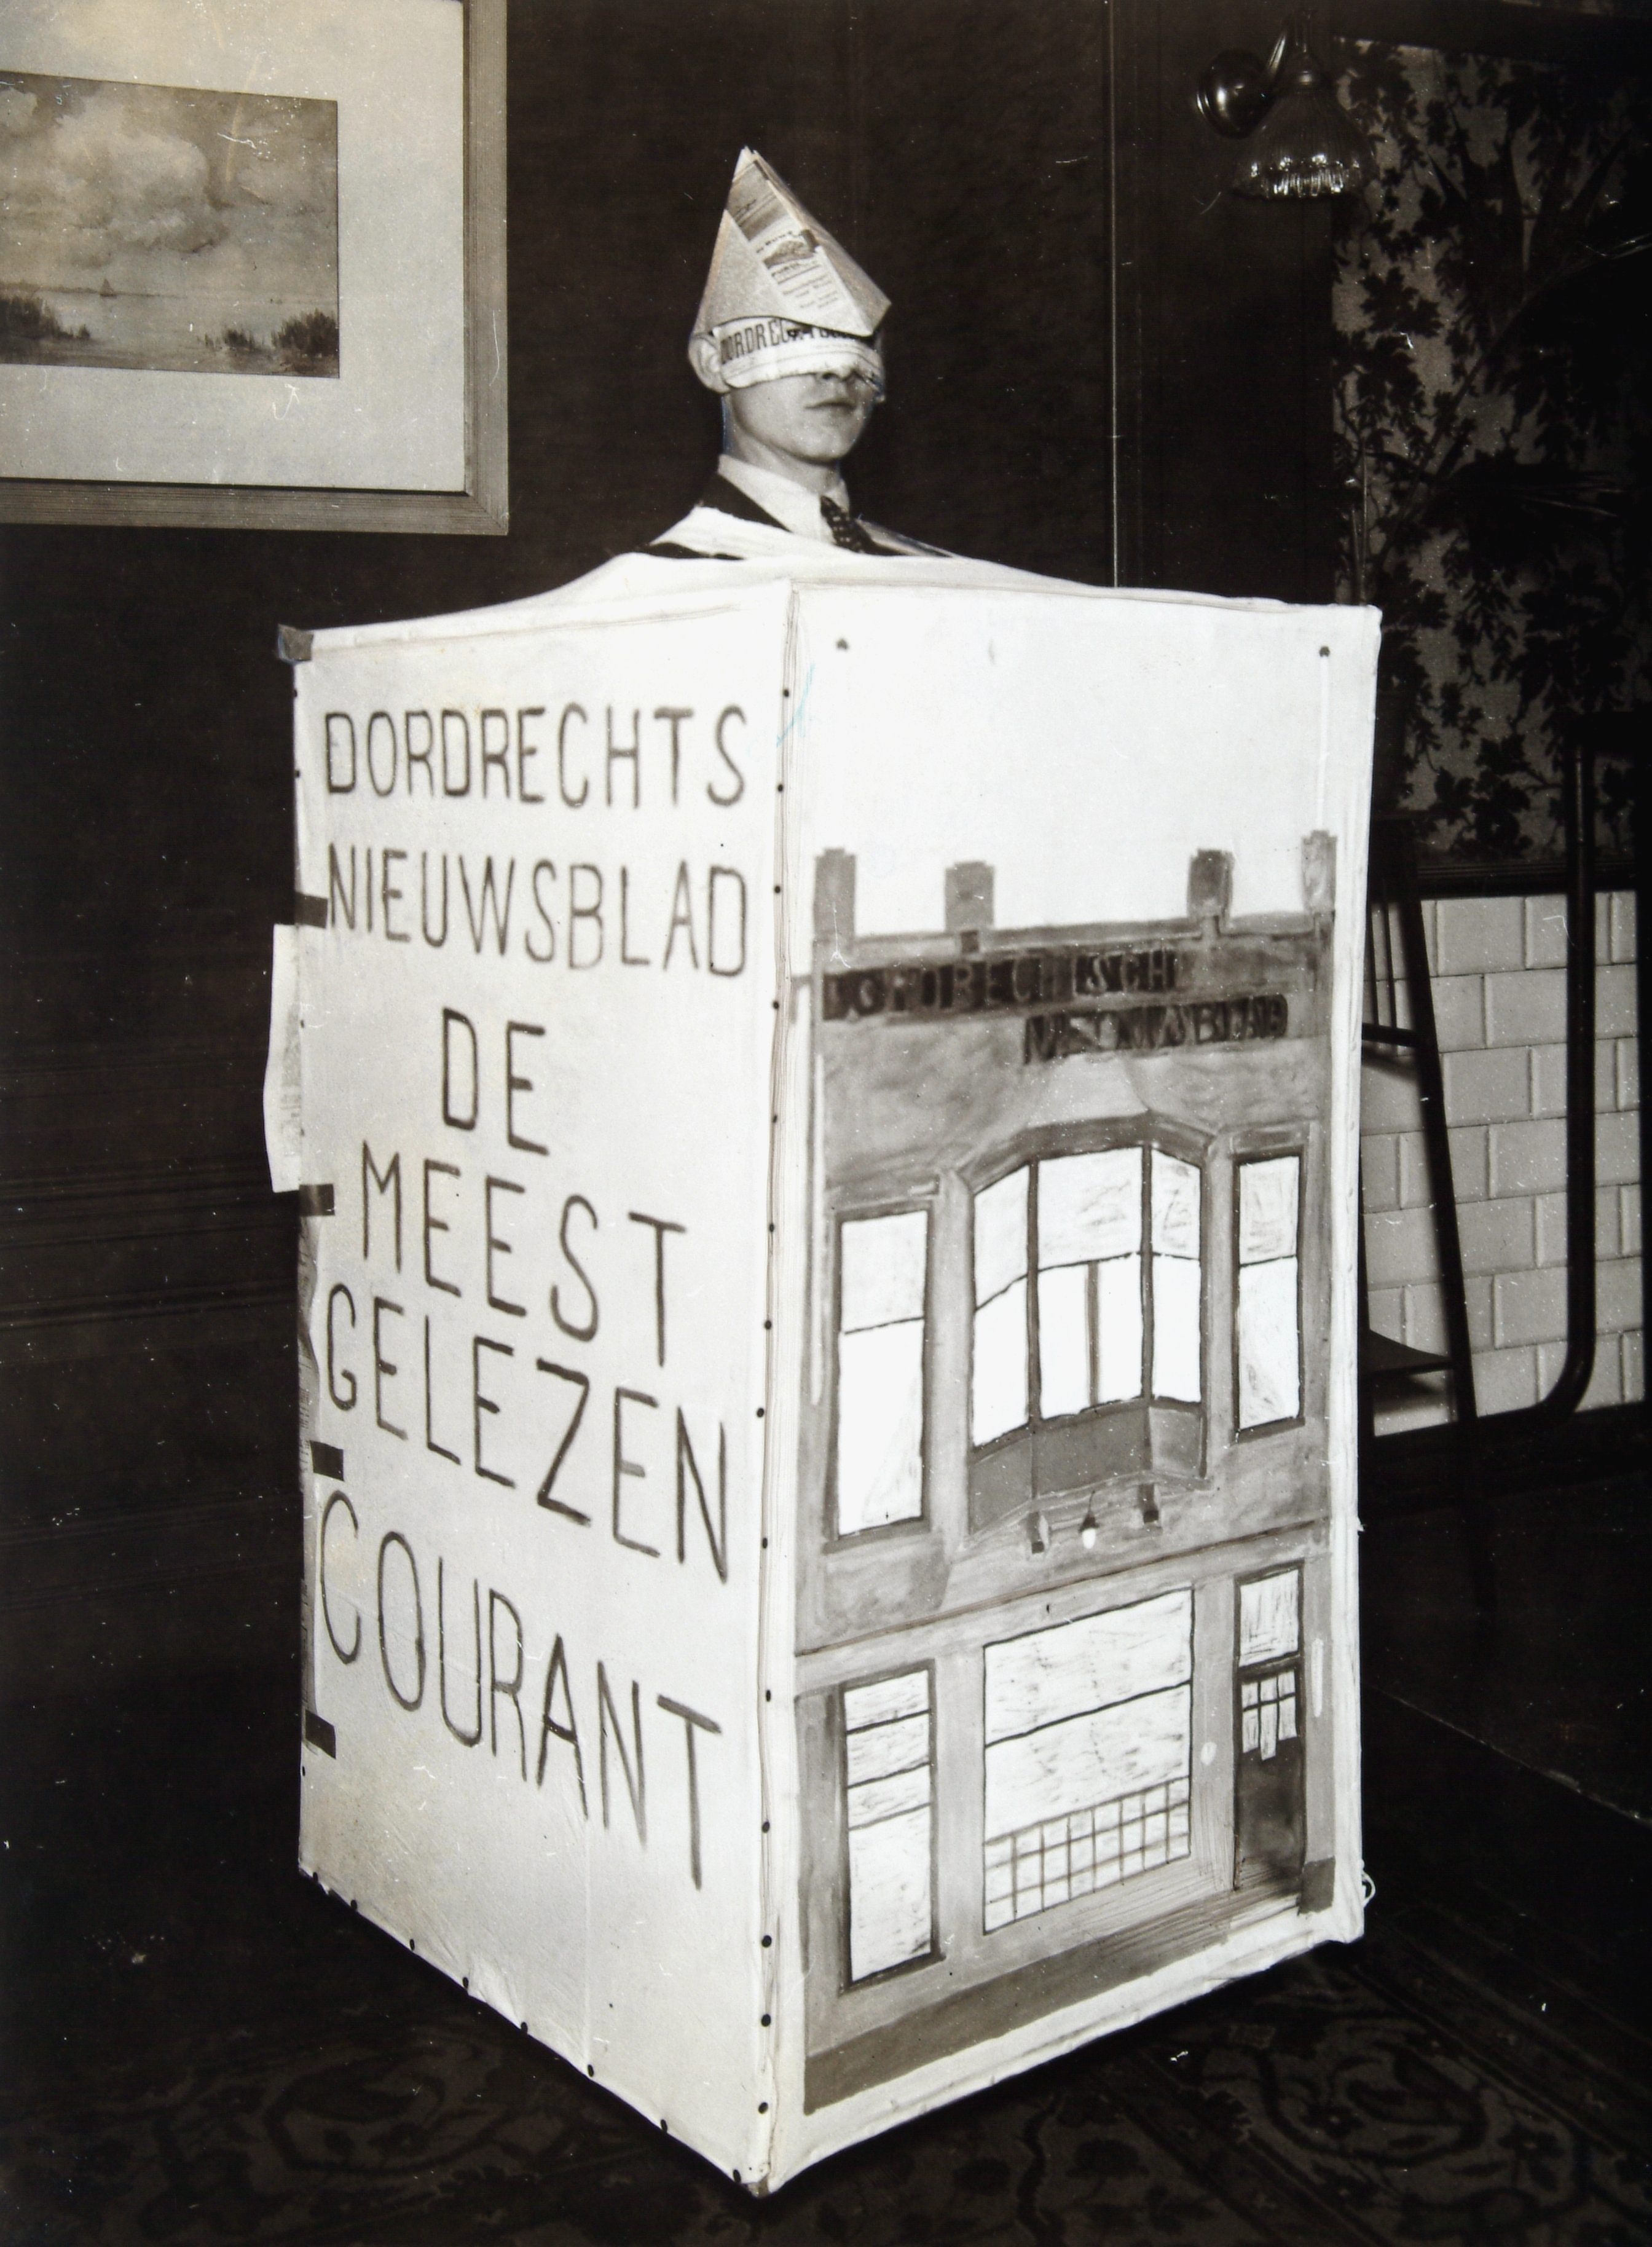 DORDRECHTS
NIEUWSBLAD
DE
MEEST
GELEZEN
COURANT
DORDRECHTSCH
NIEUWSBLAD